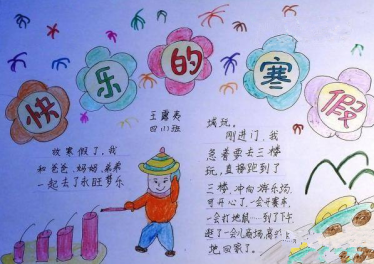 快乐的寒假
王露夷
四(1)班
放寒假了，我
和爸爸、妈妈、弟弟
一起去了永旺梦乐
城玩。
刚进门，我
急着要去三楼
玩，直接跑到了
三楼，冲向游乐场，
可开心了，一会开赛车，
一会打地鼠…到了下午
逛了一会儿商场，高兴
地回家了。